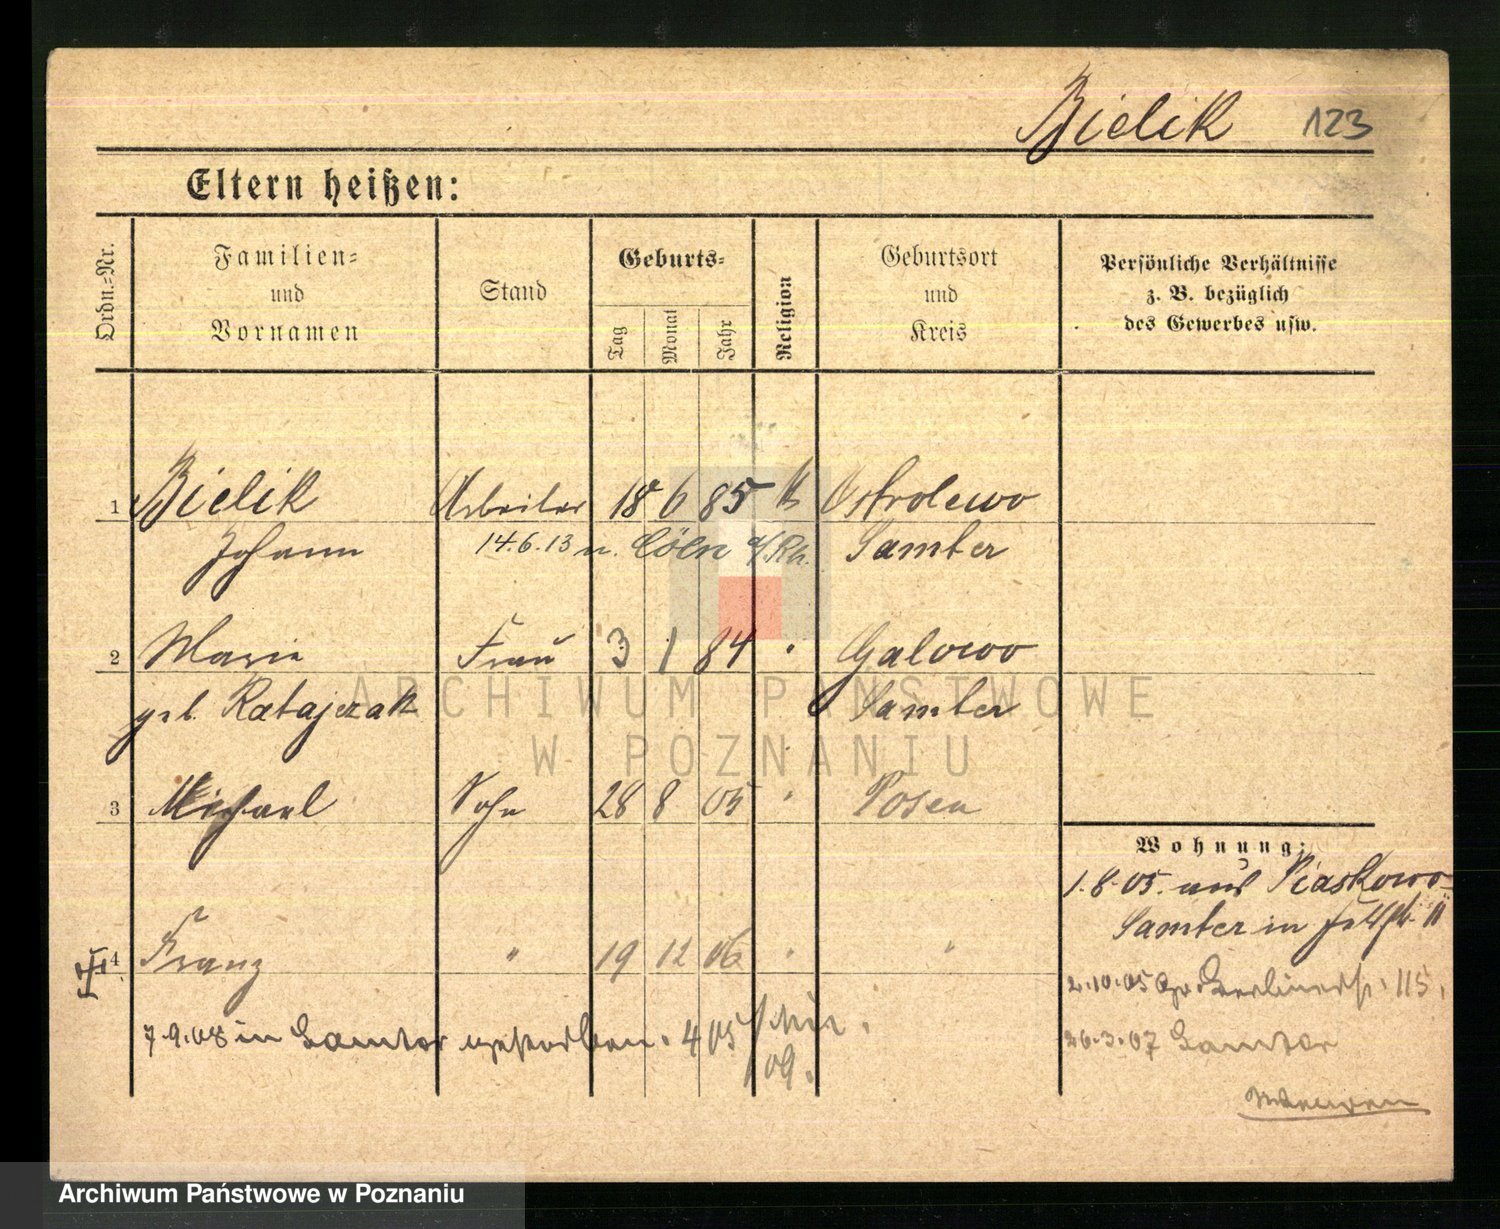 Bielik 123
Eltern heißen:
Ordn.-Nr.
Familien-
und
Vornamen
Stand
Geburts-
Tag
Monat
Jahr
Religion
Geburtsort
und
Kreis
Persönliche Verhältnisse
z. B. bezüglich
des Gewerbes usw.
1 Bielik Arbeiter 18 6 85 k Ostrolewo
Johann 14.6.13 n. Cöln a/Rh. Samter
2 Marie Frau 3 1 84 " Galowo
geb. Ratajczak Samter
3 Michael Sohn 28 8 05 " Posen
Wohnung:
1.8.05. aus Piaskowo
Samter in
4 Franz " 19 12 06 " "
2.10.05 Gr. Berlinerstr. 115.
7.9.08 in Samter gestorben. 405
09.
26.3.07 Samter
ARCHIWUM PAŃSTWOWE
W POZNANIU
Archiwum Państwowe w Poznaniu